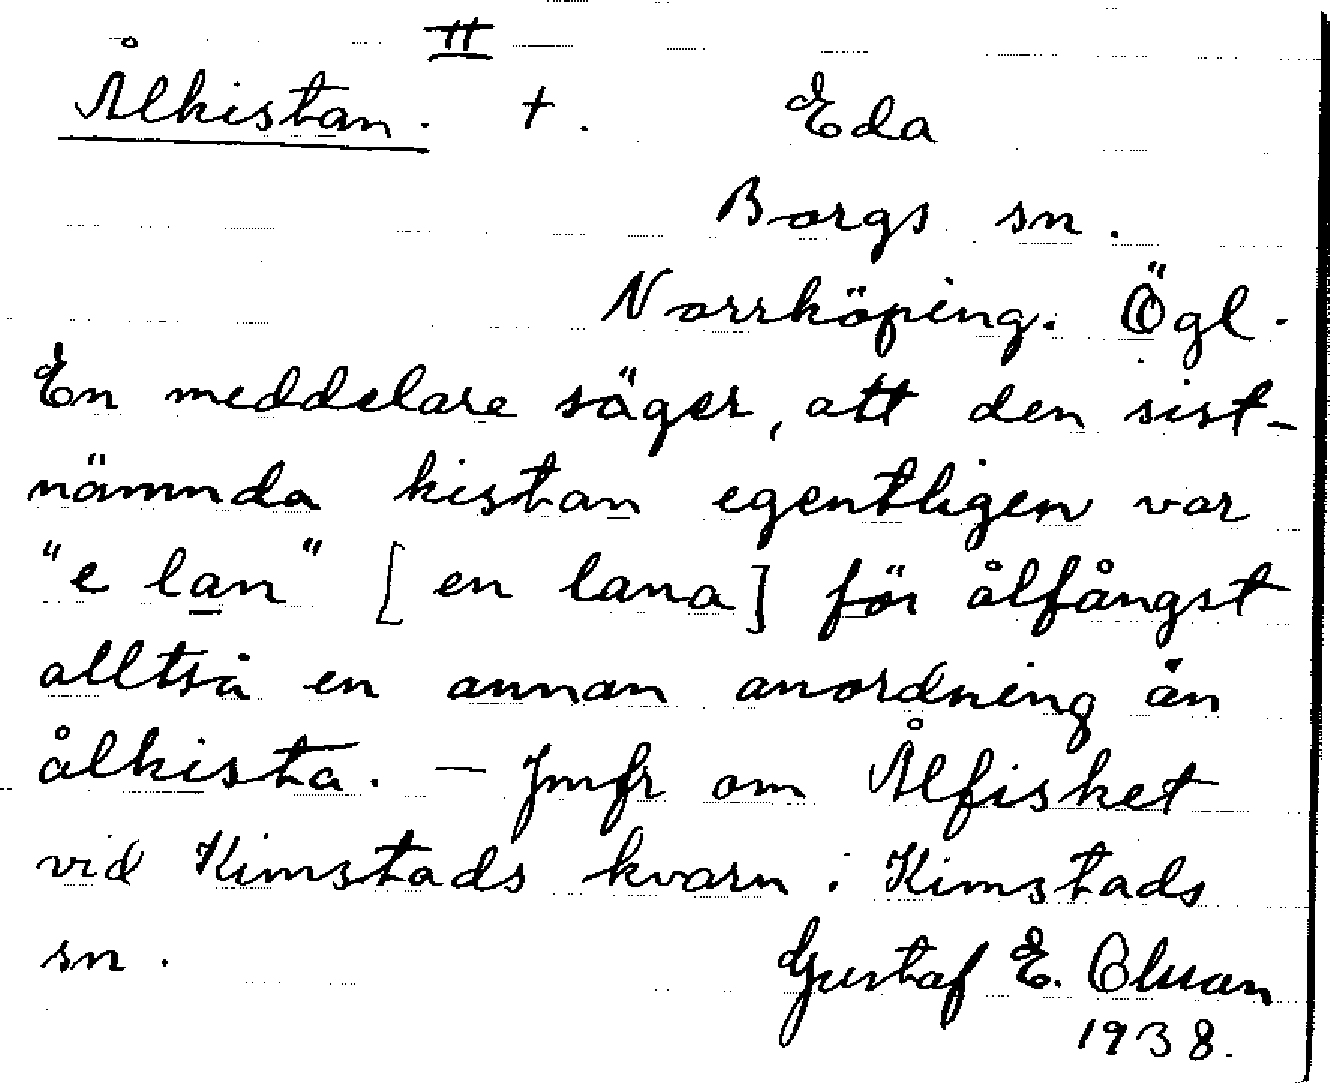 II
Ålkistan. +. Eda
Borgs sn.
Norrköping. Ögl.
En meddelare säger, att den sist-
nämnda kistan egentligen var
"e lan" [en lana] för ålfångst
alltså en annan anordning än
ålkista. — Jmfr om Ålfisket
vid Kimstads kvarn i Kimstads
sn. Gustaf E. Olsson
1938.